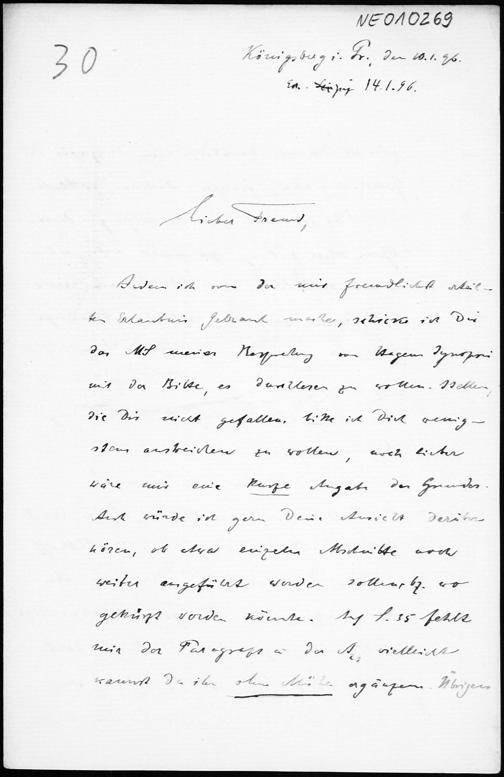 NE010269
30
Königsberg i. Pr., den 10.1.96.
14.1.96.
Lieber Freund,
Indem ich von der mir freundlichst erteil-
ten Erlaubnis Gebrauch mache, schicke ich Dir
das MS meiner Besprechung von Hagens Synopsis
mit der Bitte, es durchlesen zu wollen. Stellen,
die Dir nicht gefallen, bitte ich Dich wenig-
stens anstreichen zu wollen, noch lieber
wäre mir eine kurze Angabe des Grundes.
Auch würde ich gern Deine Ansicht darüber
hören, ob etwa einzelne Abschnitte noch
weiter ausgeführt werden sollen, bz. wo
gekürzt werden könnte. Auf S. 35 fehlt
mir der Paragraph in der vielleicht
kannst Du ihn ohne Mühe ergänzen. Übrigens